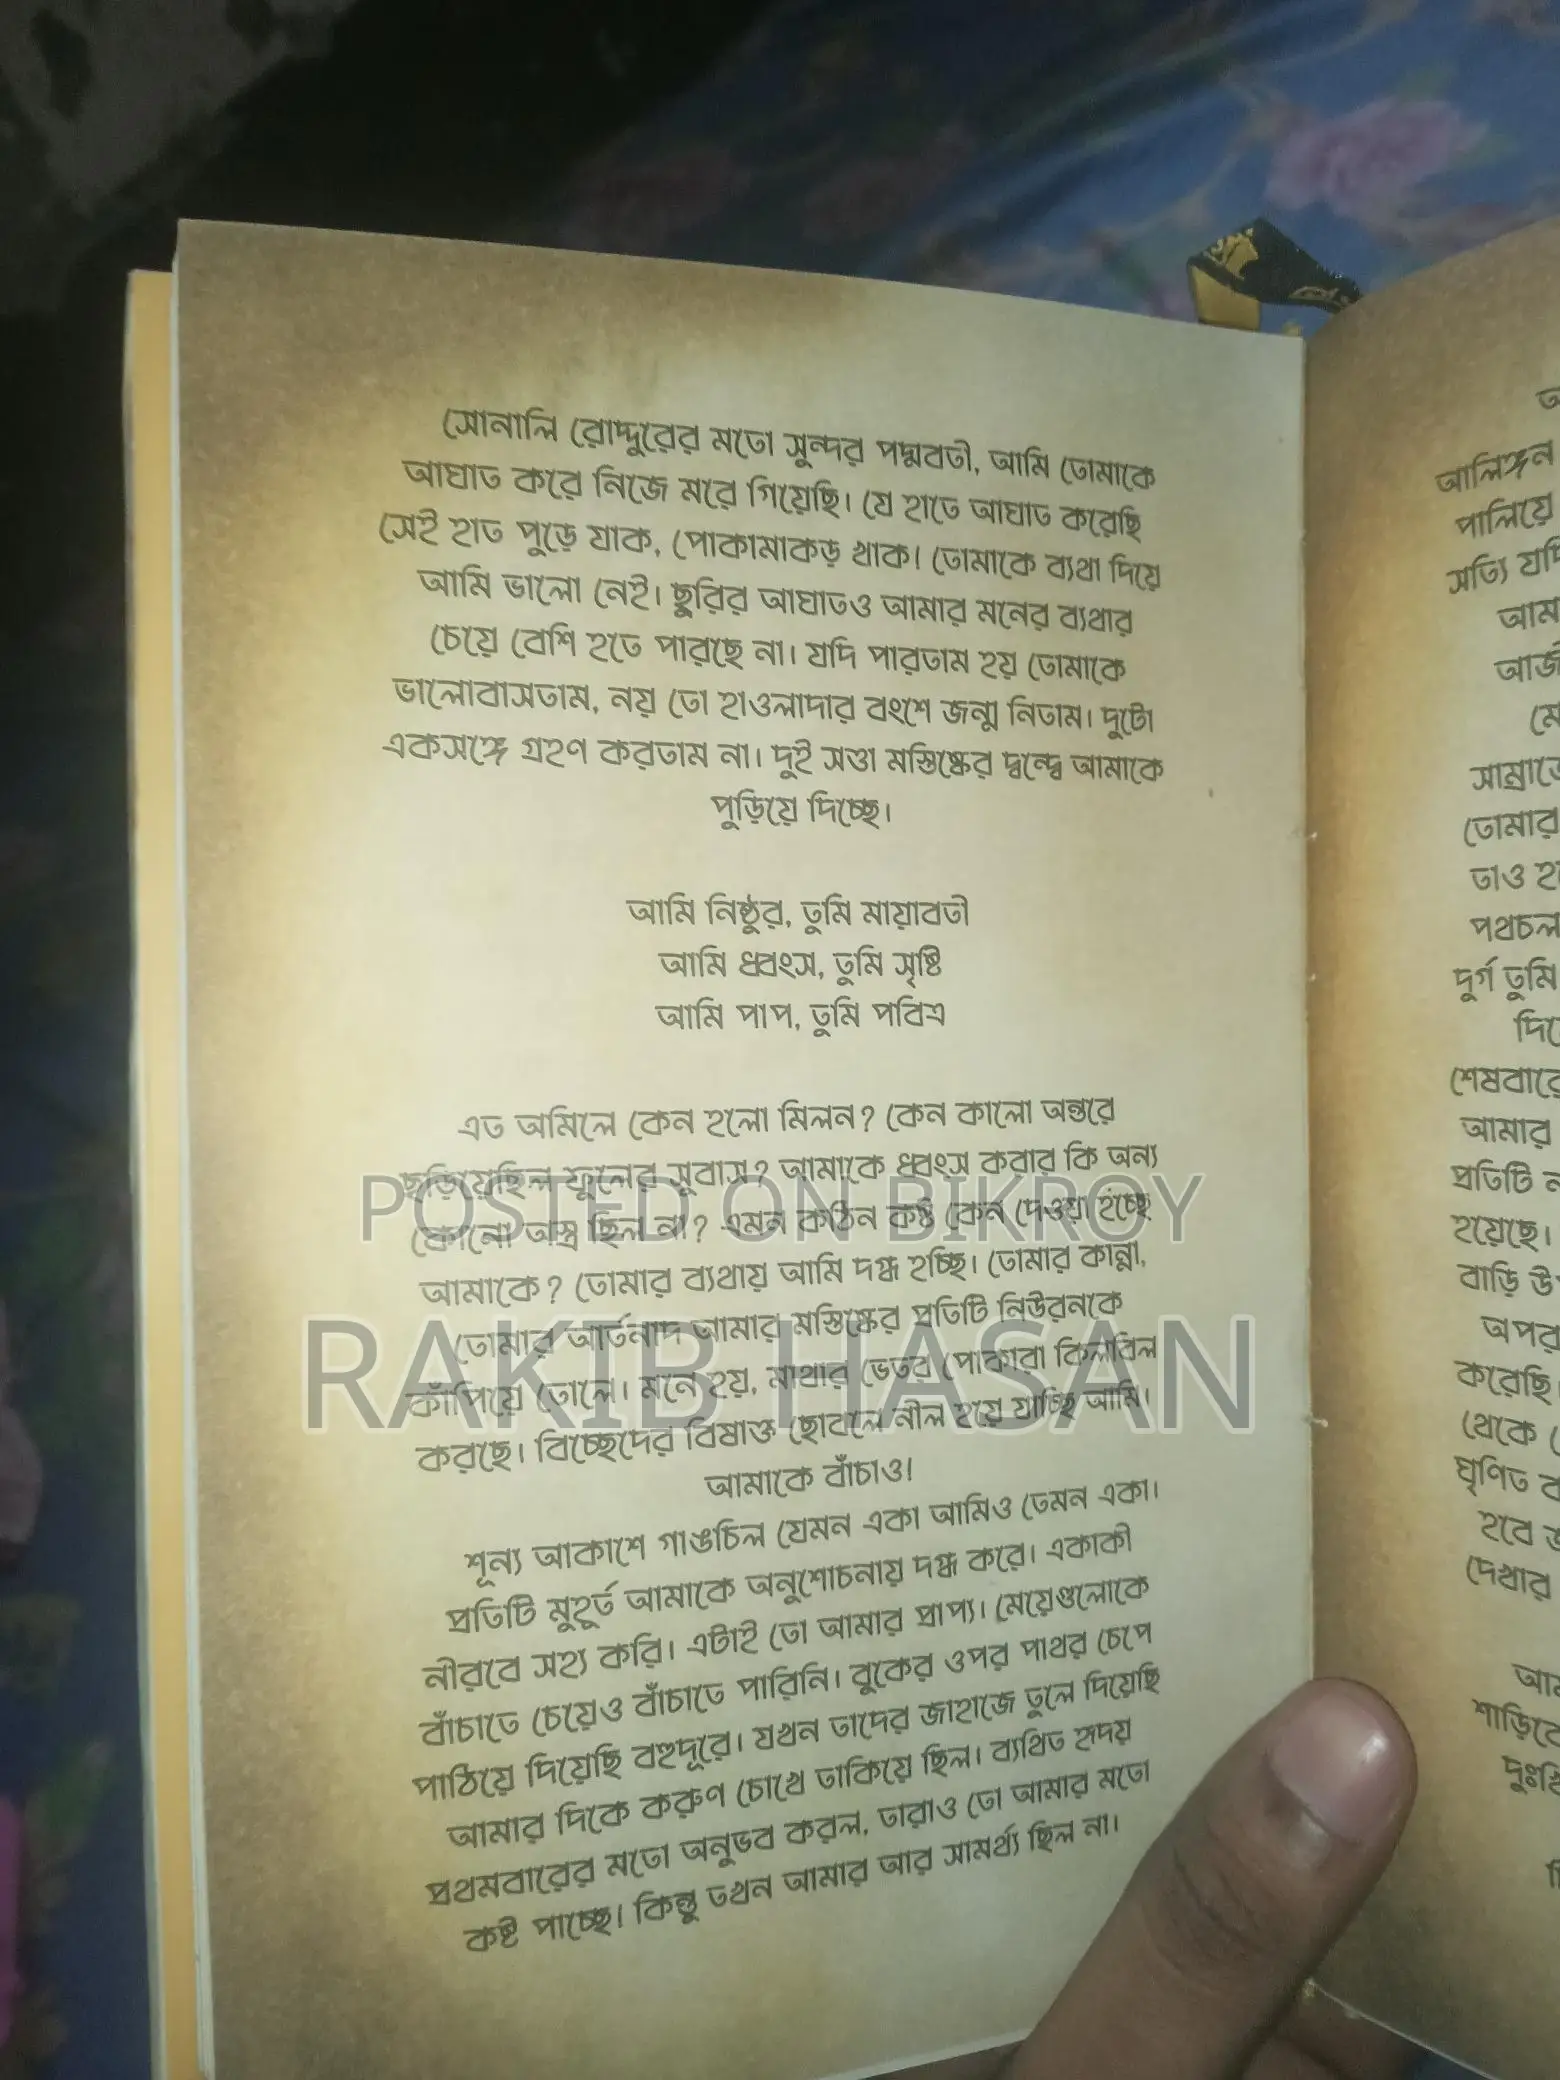 সোনালি রোদ্দুরের মতো সুন্দর পদ্মবতী, আমি তোমাকে
আঘাত করে নিজে মরে গিয়েছি। যে হাতে আঘাত করেছি
সেই হাত পুড়ে যাক, পোকামাকড় খাক। তোমাকে ব্যথা দিয়ে
আমি ভালো নেই। ছুরির আঘাতও আমার মনের ব্যথার
চেয়ে বেশি হতে পারছে না। যদি পারতাম হয় তোমাকে
ভালোবাসতাম, নয় তো হাওলাদার বংশে জন্ম নিতাম। দুটো
একসঙ্গে গ্রহণ করতাম না। দুই সত্তা মস্তিষ্কের দ্বন্দ্বে আমাকে
পুড়িয়ে দিচ্ছে।
আমি নিষ্ঠুর, তুমি মায়াবতী
আমি ধ্বংস, তুমি সৃষ্টি
আমি পাপ, তুমি পবিত্র
এত অমিলে কেন হলো মিলন? কেন কালো অন্তরে
ছড়িয়েছিল ফুলের সুবাস? আমাকে ধ্বংস করার কি অন্য
কোনো অস্ত্র ছিল না? এমন কঠিন কষ্ট কেন দেওয়া হচ্ছে
আমাকে? তোমার ব্যথায় আমি দগ্ধ হচ্ছি। তোমার কান্না,
তোমার আর্তনাদ আমার মস্তিষ্কের প্রতিটি নিউরনকে
কাঁপিয়ে তোলে। মনে হয়, মাথার ভেতর পোকারা কিলবিল
করছে। বিচ্ছেদের বিষাক্ত ছোবলে নীল হয়ে যাচ্ছি আমি।
আমাকে বাঁচাও।
শূন্য আকাশে গাঙচিল যেমন একা আমিও তেমন একা।
প্রতিটি মুহূর্ত আমাকে অনুশোচনায় দগ্ধ করে। একাকী
নীরবে সহ্য করি। এটাই তো আমার প্রাপ্য। মেয়েগুলোকে
বাঁচাতে চেয়েও বাঁচাতে পারিনি। বুকের ওপর পাথর চেপে
পাঠিয়ে দিয়েছি বহুদূরে। যখন তাদের জাহাজে তুলে দিয়েছি
আমার দিকে করুণ চোখে তাকিয়ে ছিল। ব্যথিত হৃদয়
প্রথমবারের মতো অনুভব করল, তারাও তো আমার মতো
কষ্ট পাচ্ছে। কিন্তু তখন আমার আর সামর্থ্য ছিল না।
POSTED ON BIKROY
RAKIB HASAN
আলিঙ্গন
পালিয়ে
সত্যি
তোমার
তাও
দুর্গ তুমি
আমার
প্রতিটি
হয়েছে।
বাড়ি
করেছি
থেকে
ঘৃণিত
হবে
দেখার